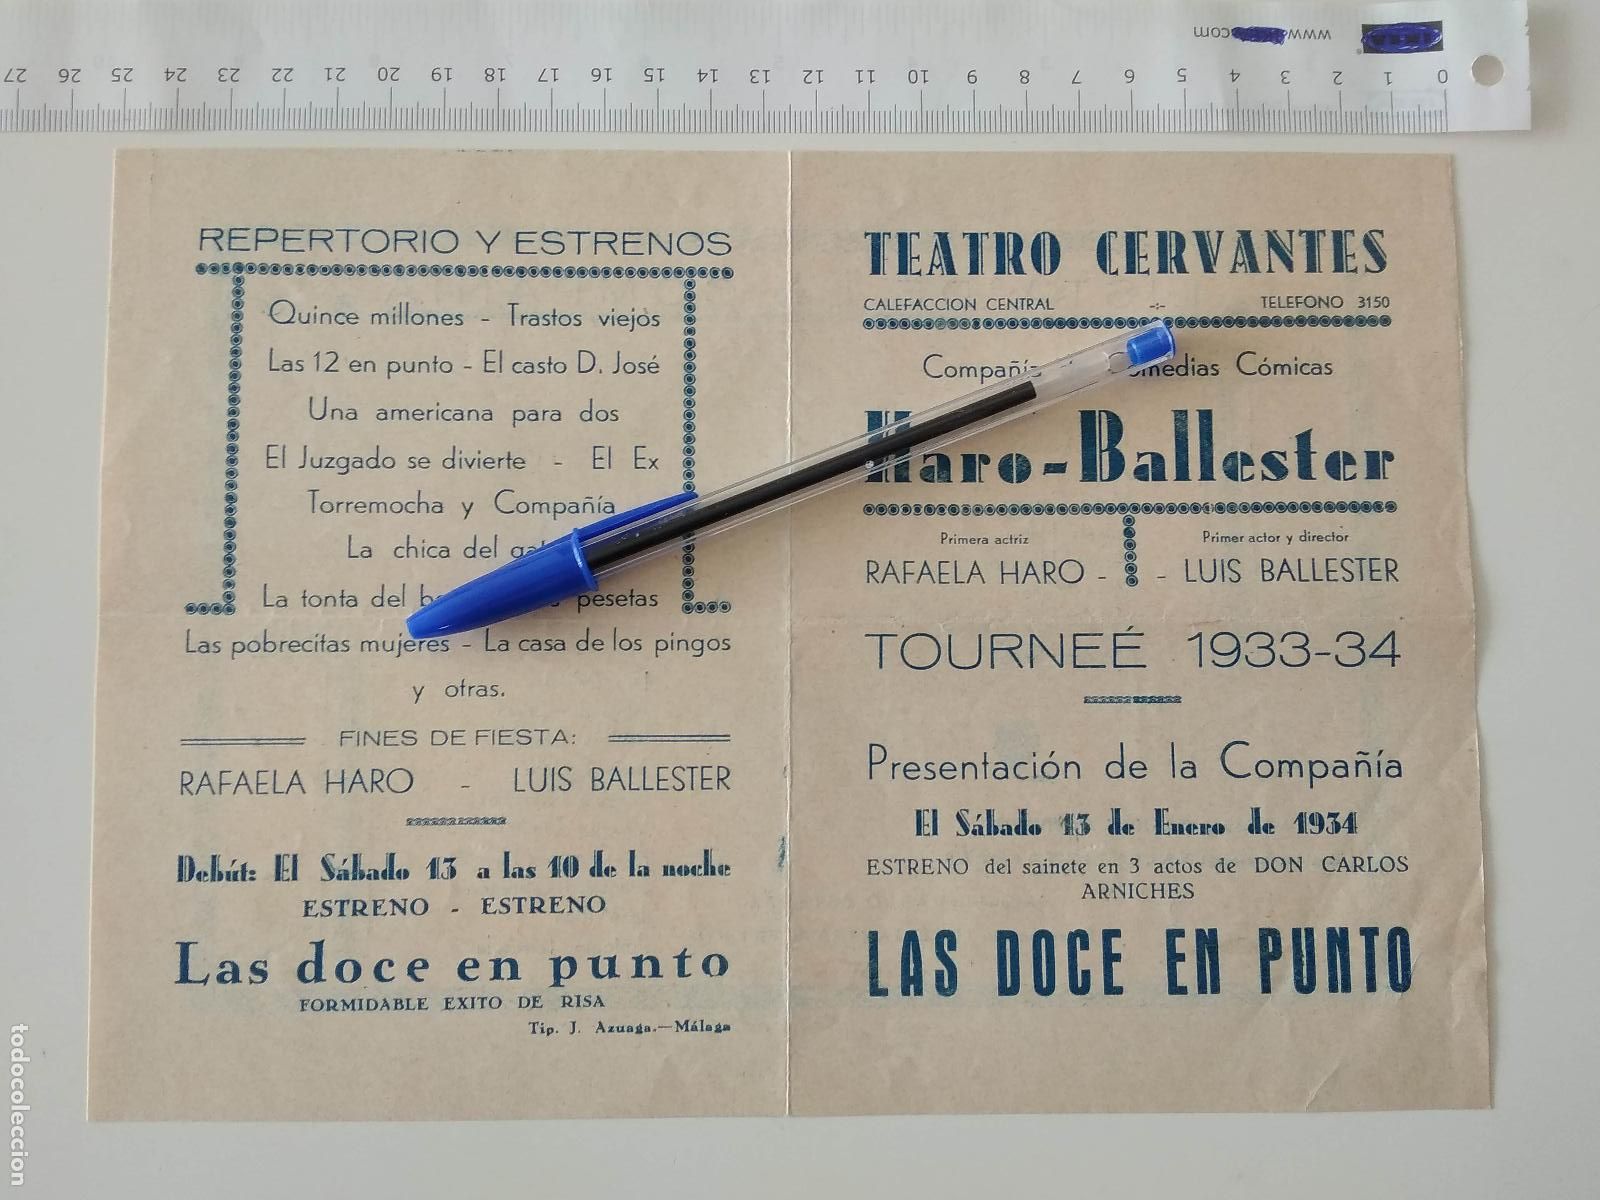 www. .com
27 26 25 24 23 22 21 20 19 18 17 16 15 14 13 12 11 10 9 8 7 6 5 4 3 2 1 0
REPERTORIO Y ESTRENOS
Quince millones - Trastos viejos
Las 12 en punto - El casto D. José
Una americana para dos
El Juzgado se divierte - El Ex
Torremocha y Compañía
La chica del
La tonta del pesetas
Las pobrecitas mujeres - La casa de los pingos
y otras.
FINES DE FIESTA:
RAFAELA HARO - LUIS BALLESTER
Debút: El Sábado 13 a las 10 de la noche
ESTRENO - ESTRENO
Las doce en punto
FORMIDABLE EXITO DE RISA
Tip. J. Azuaga.—Málaga
TEATRO CERVANTES
CALEFACCION CENTRAL -:- TELEFONO 3150
Compañía Comedias Cómicas
Haro-Ballester
Primera actriz Primer actor y director
RAFAELA HARO - - LUIS BALLESTER
TOURNEÉ 1933-34
Presentación de la Compañía
El Sábado 13 de Enero de 1934
ESTRENO del sainete en 3 actos de DON CARLOS
ARNICHES
LAS DOCE EN PUNTO
todocoleccion